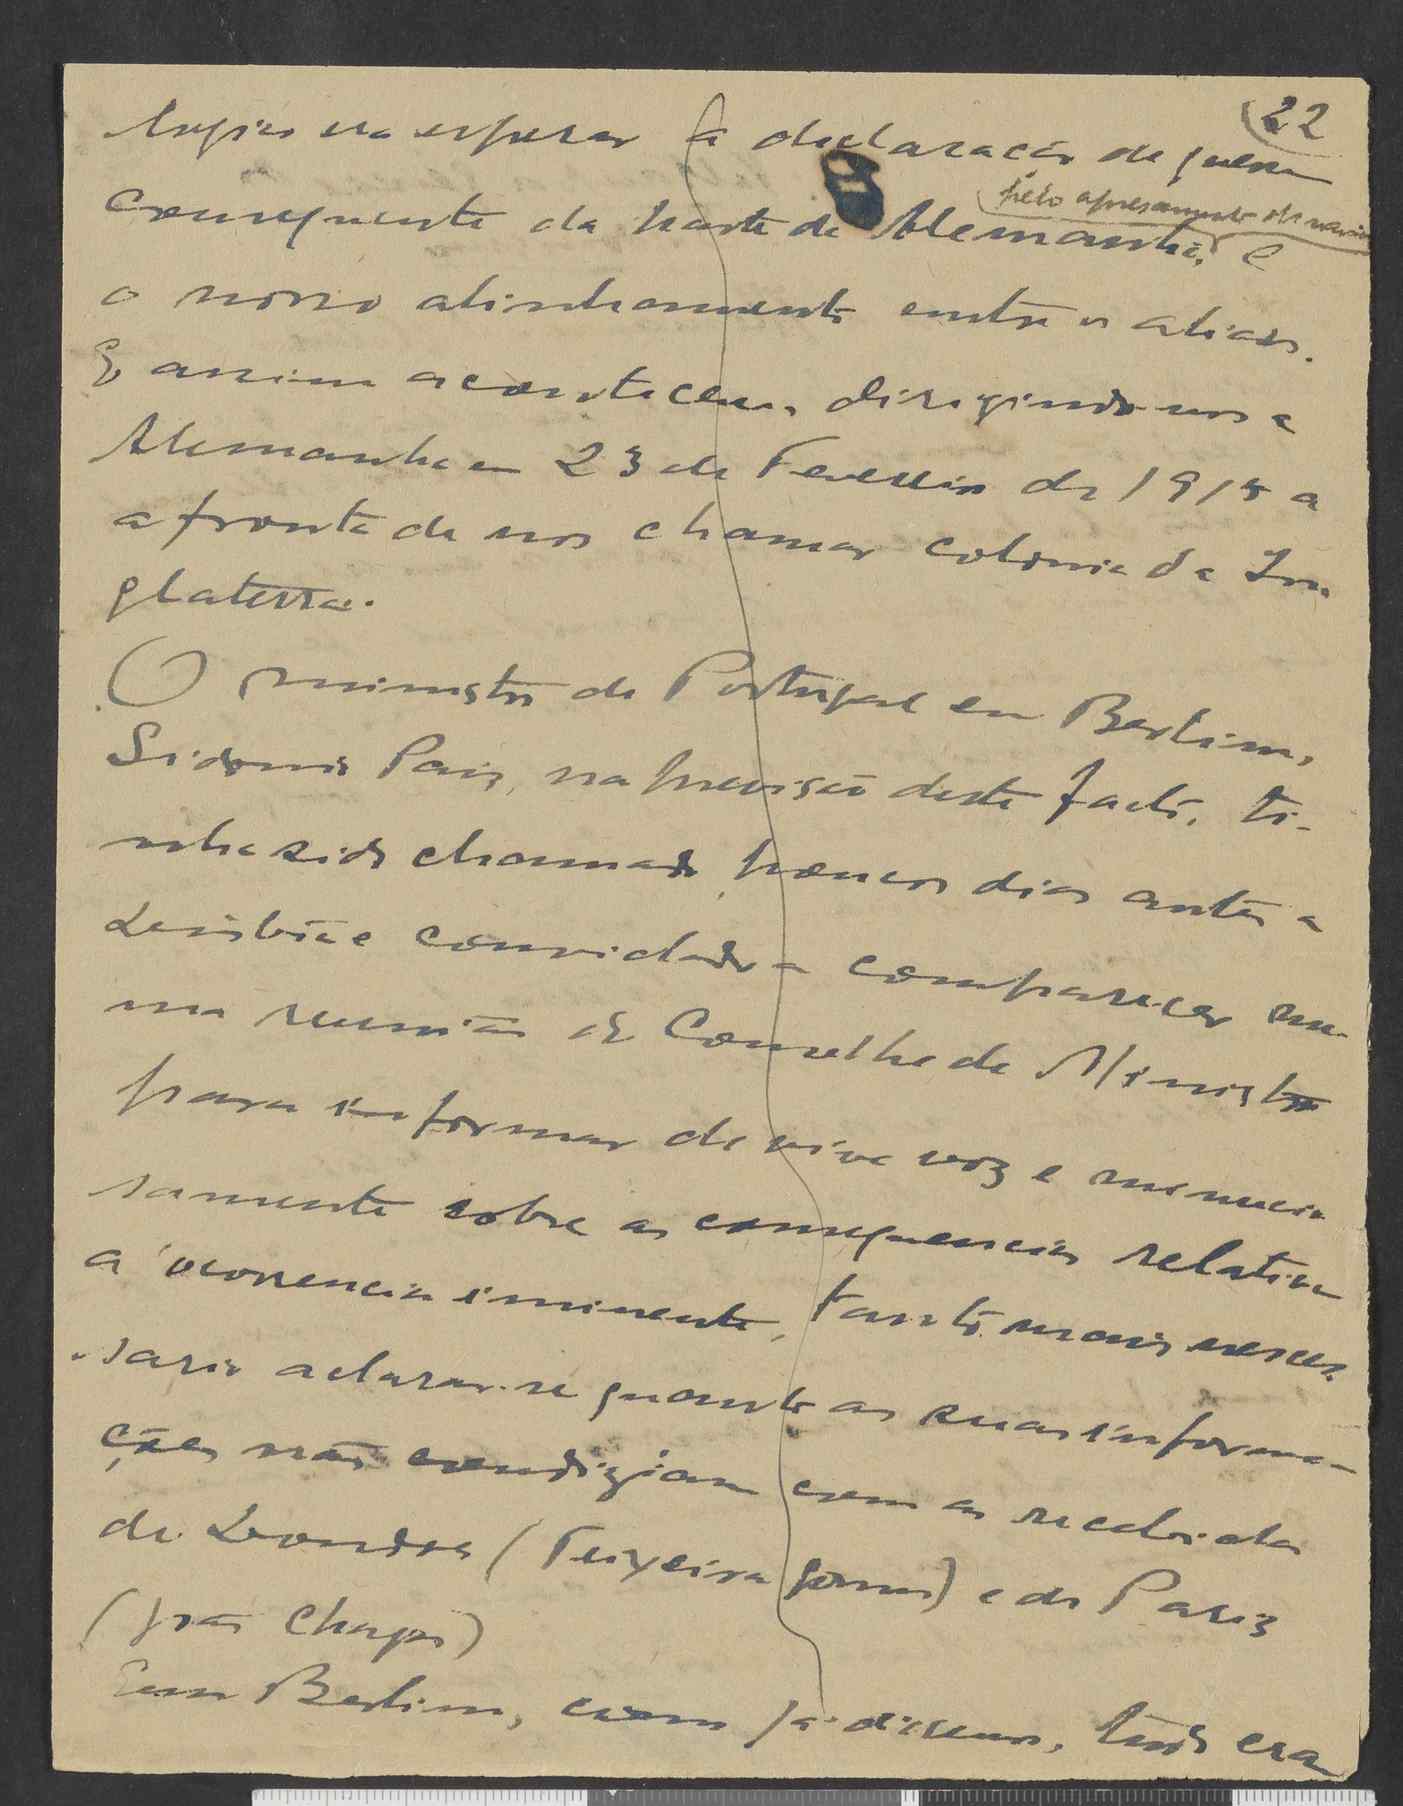 22
era esperar a declaração de guerra
pelo apresamento de navios
consequente da parte da Alemanha, e
o nosso alinhamento entre os aliados.
E assim aconteceu, dirigindo-nos a
Alemanha em 23 de Fevereiro de 1915 a
afronta de nos chamar colonia da In-
glaterra.
O ministro de Portugal em Berlim,
Sidonio Pais, na previsão deste facto, ti-
nha sido chamado poucos dias antes a
Lisboa e convidado a comparecer nu-
ma reunião do Conselho de Ministros
para informar de viva voz e minucio
samente sobre as consequencias relativas
á ocorrencia iminente, tanto mais neces-
sario aclarar-se quanto as suas informa-
ções não condiziam com as recebidas
de Londres (Teixeira Gomes) e de Paris
(João Chagas)
Em Berlim, como já dissemos, tudo era